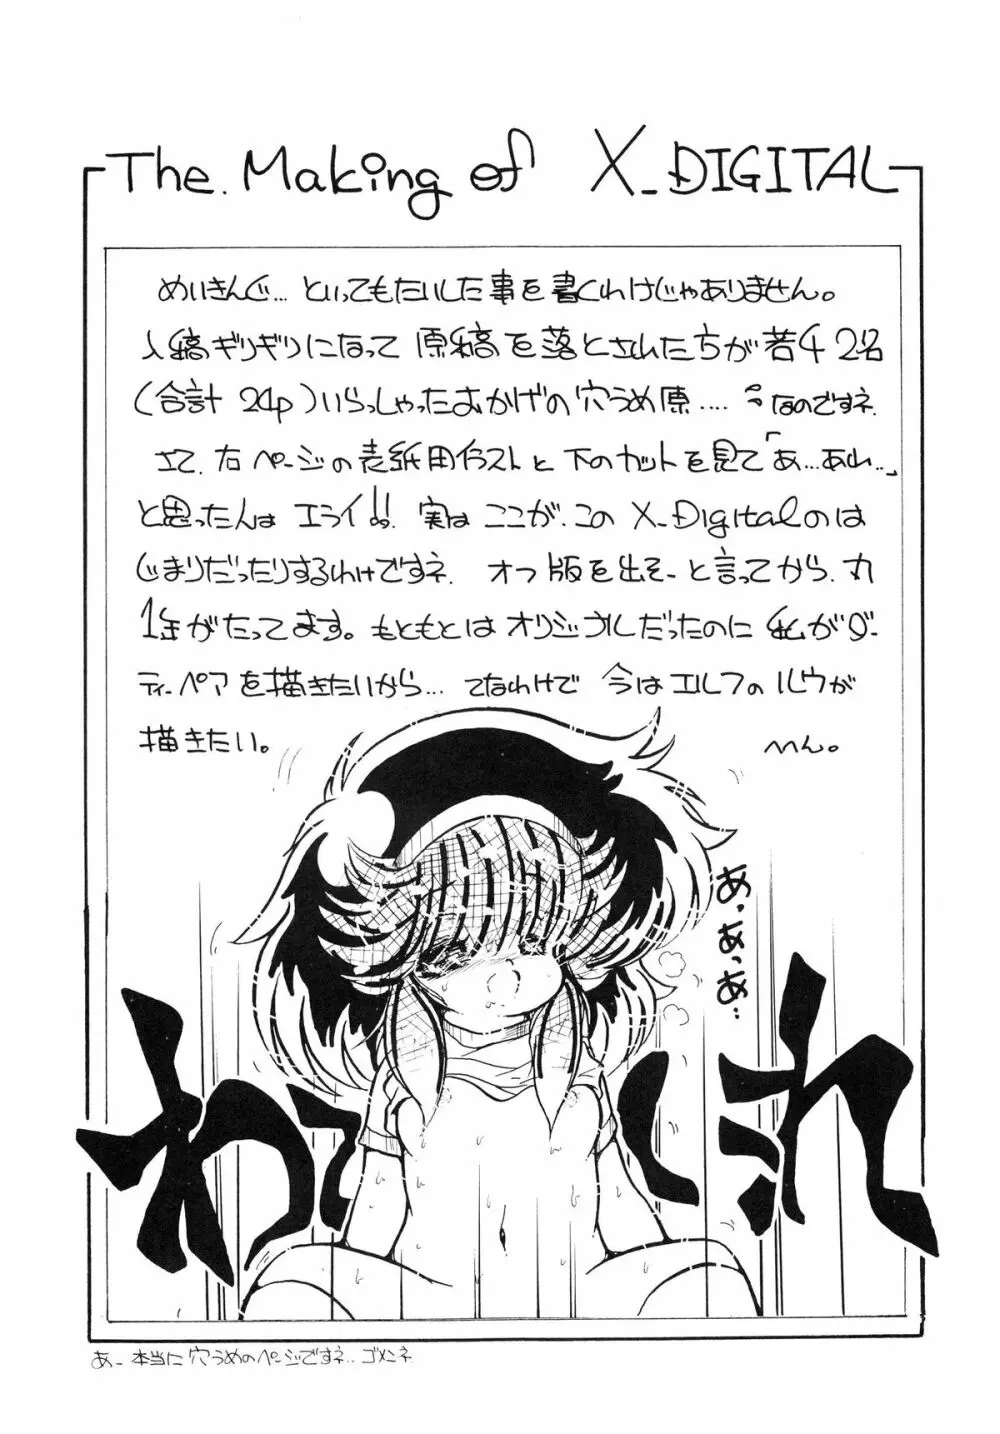 The.Making of X_DIGITAL
めいきんぐ… といってもたいした事を書くわけじゃありません。
入稿ギリギリになって 原稿を落とされたた方が若干2名
(合計 24p)いらっしゃったおかげの穴うめ原…. なのですネ.
さて、右ページの表紙用イラストと下のカットを見て「あ…あれ‥」
と思った人は エライ!! 実は ここが、この X_Digitalのは
じまりだったりするわけですネ. オフ版を出そーと言ってから、丸
1年がたってます。もともとはオリジナルだったのに 私がダー
ティーペアを描きたいから… てなわけで 今はエルフのルウが
描きたい。 へん。
あっあっあ‥
あー 本当に穴うめのページですネ… ゴメンネ